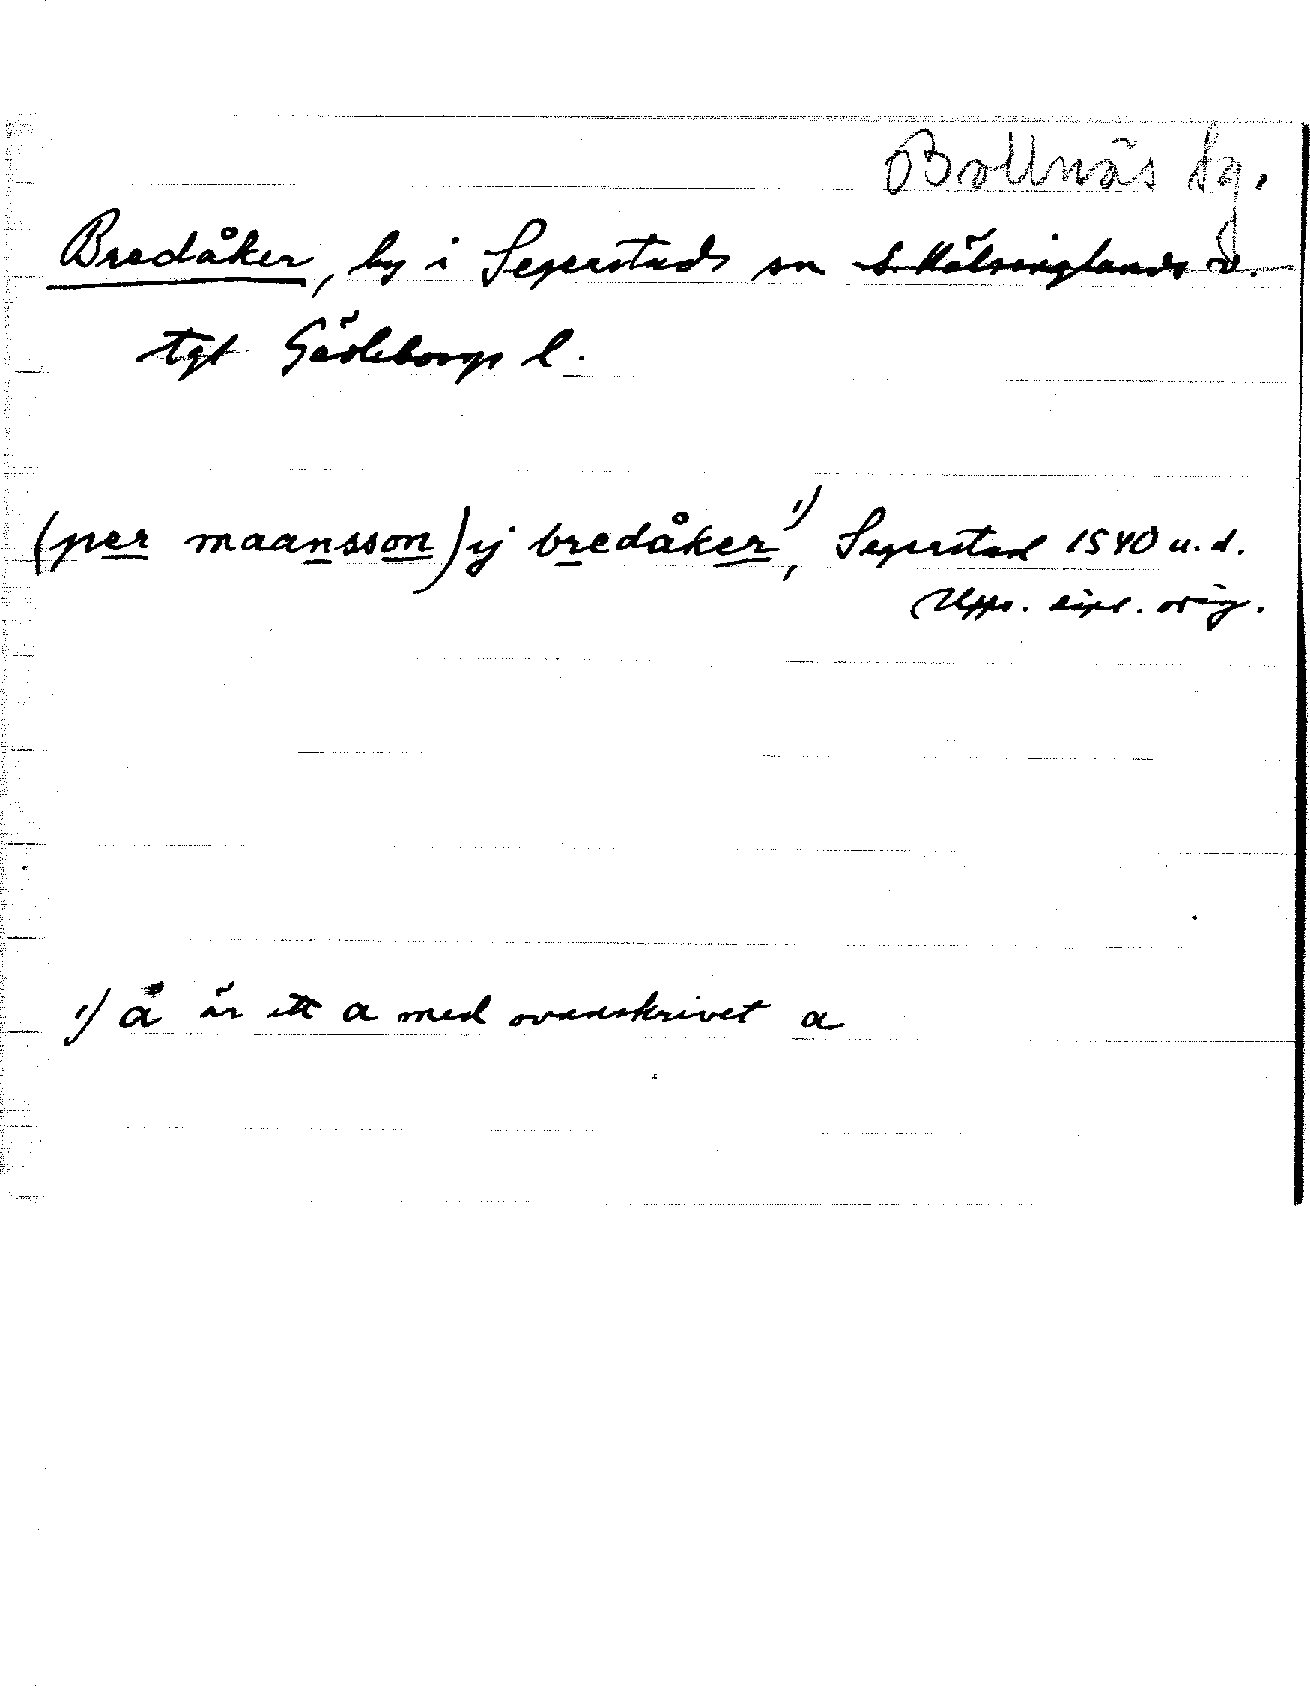 Bollnäs tg.
Bredåker, by i Segerstads sn S. Hälsinglands v.
tgt Gävleborgs l.
(per maansson) ij bredåker 1), Segerstad 1540 u. d.
Upps. dipl. orig.
1) å är ett a med ovanskrivet a